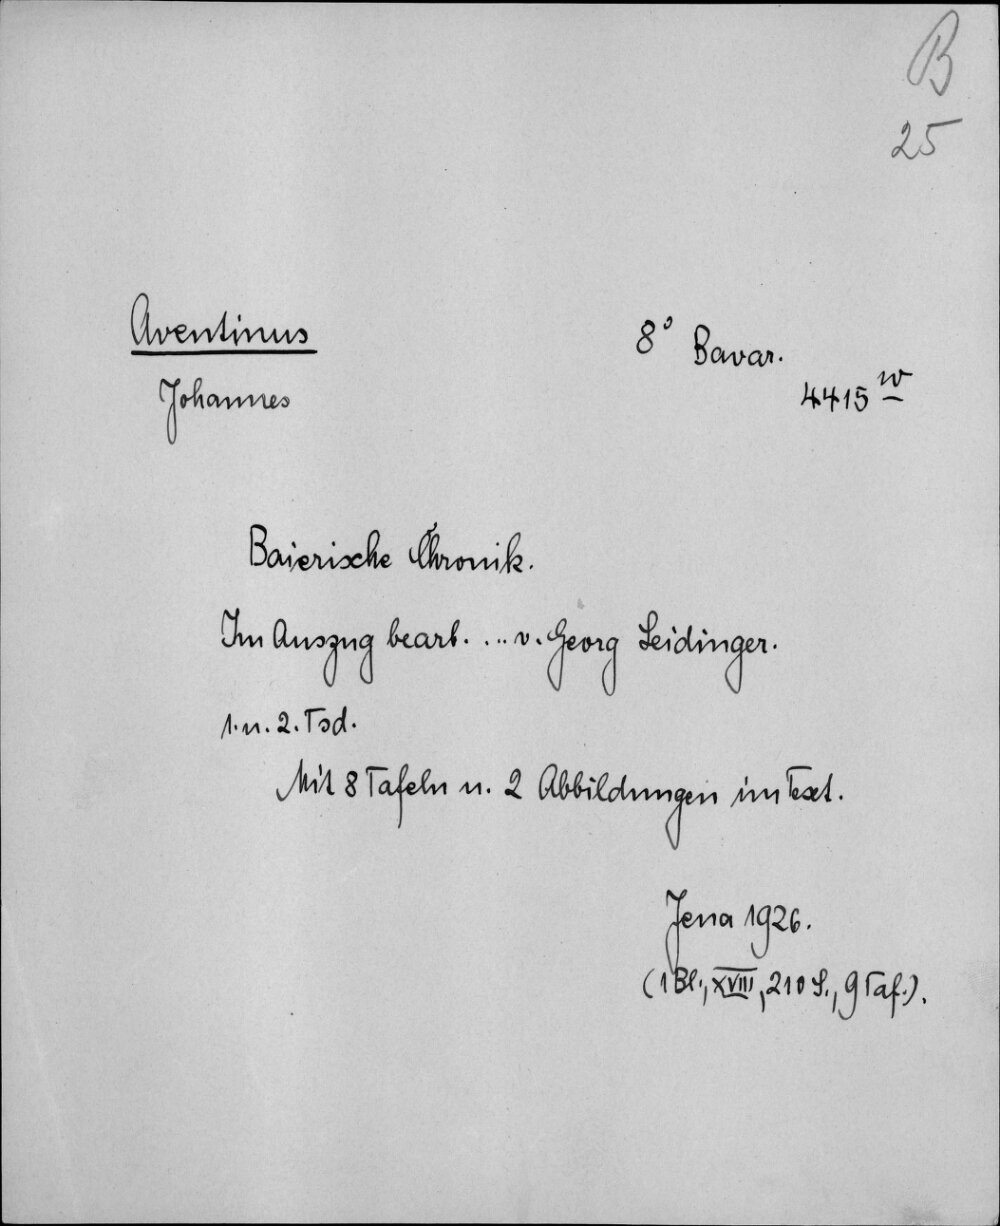 B
25
Aventinus
Johannes
8° Bavar.
4415 w
Baierische Chronik.
Im Auszug bearb. ... v. Georg Leidinger.
1. u. 2. Tsd.
Mit 8 Tafeln u. 2 Abbildungen im Text.
Jena 1926.
(1 Bl., XVIII, 210 S., 9 Taf.).